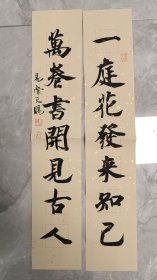 一庭花發来知己
萬卷書開見古人